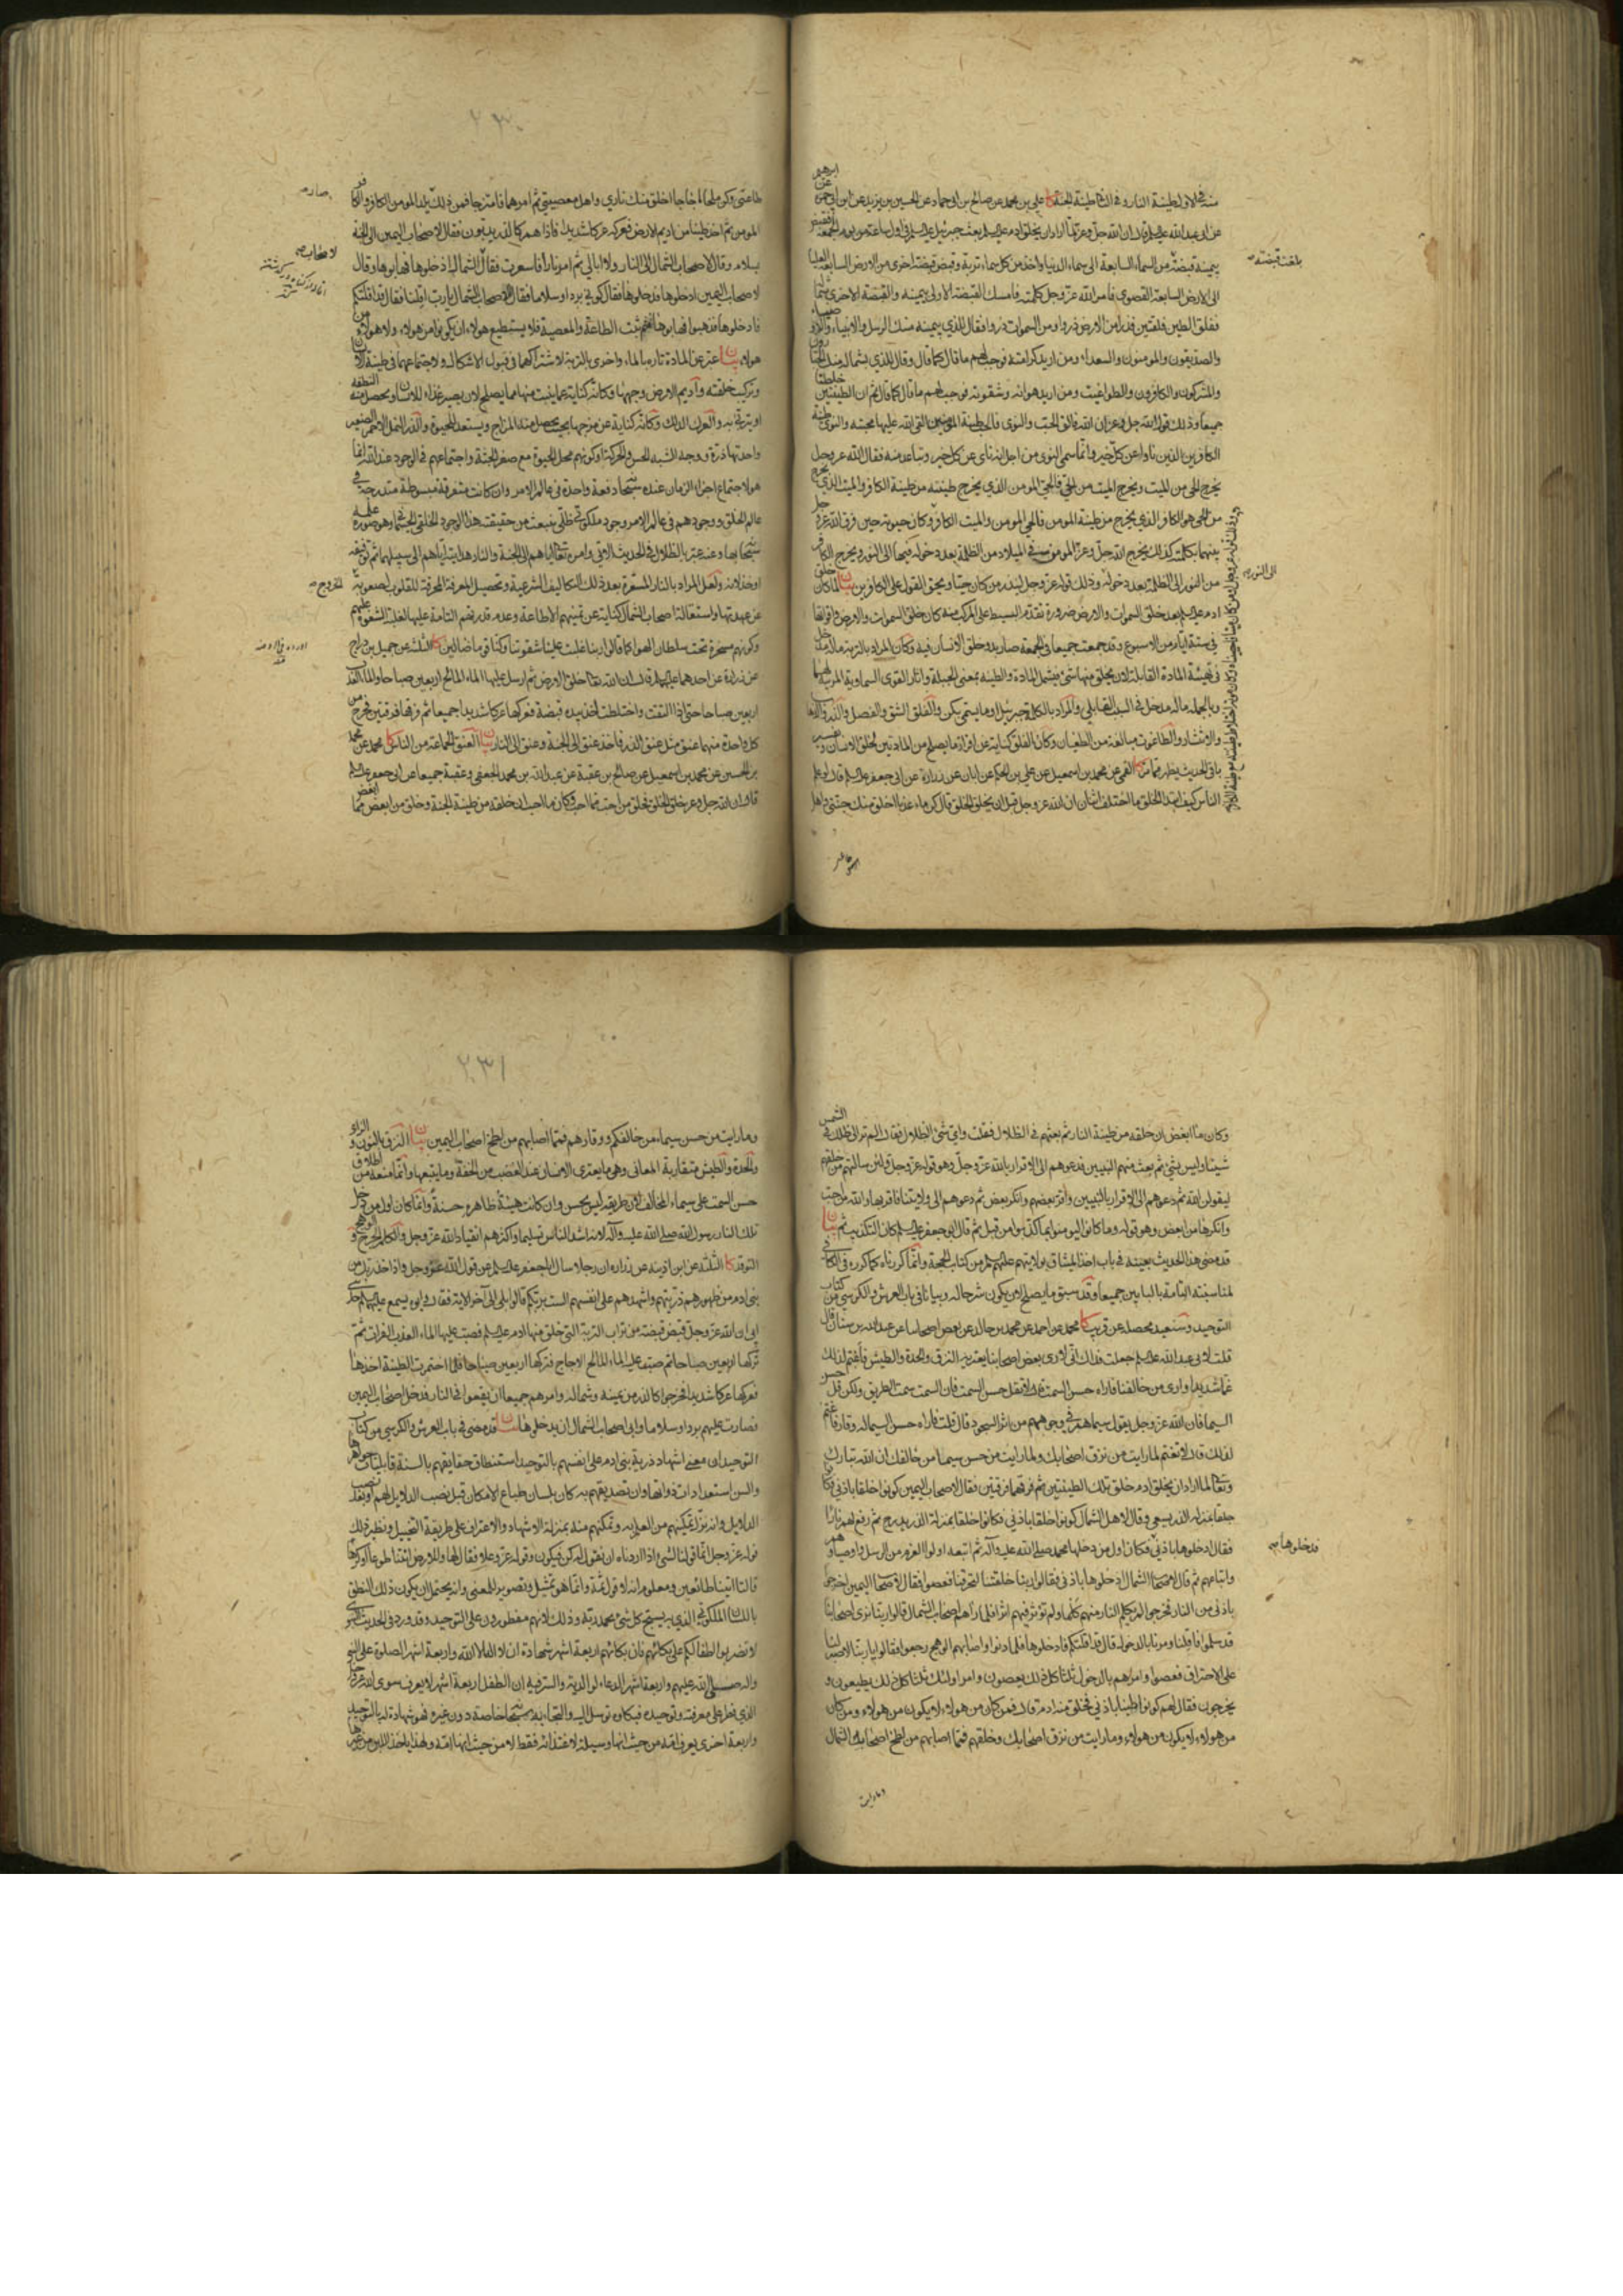 منه في الاول طينة النار وفي الثاني طينة الجنة كا علي بن محمد عن صالح بن ابي حماد عن الحسين بن يزيد عن ابن ابي حمزة عن ابرهيم
عن ابي عبد الله عليه السلم قال ان الله جل وعز لما اراد ان يخلق ادم عليه السلم بعث جبرئيل عليه السلم في اول ساعة من يوم الجمعة فقبض
بيمينه قبضة من السماء السابعة الى سماء الدنيا واخذ من كل سماء تربة وقبض قبضة اخرى من الارض السابعة العليا
الى الارض السابعة القصوى فامر الله عز وجل كلمته فامسك القبضة الاولى بيمينه والقبضة الاخرى بشماله
ففلق الطين فلقتين فذرا من الارض ذروا ومن السموات ذروا فقال للذي بيمينه منك الرسل والانبياء والاوصياء
والصديقون والمومنون والسعداء ومن اريد كرامته فوجب لهم ما قال كما قال وقال للذي بشماله منك الجبارون
والمشركون والكافرون والطواغيت ومن اريد هوانه وشقوته فوجب لهم ما قال كما قال ثم ان الطينتين خلطتا
جميعا وذلك قول الله جل وعز ان الله فالق الحب والنوى فالحب طينة المؤمنين التي القى الله عليها محبته والنوى طينة
الكافرين الذين ناوا عن كل خير وانما سمي النوى من اجل انه ناى عن كل خير وتباعد منه فقال الله عز وجل
يخرج الحي من الميت ويخرج الميت من الحي فالحي المومن الذي يخرج طينته من طينة الكافر والميت الذي يخرج
من الحي هو الكافر الذي يخرج من طينة المومن فالحي المومن والميت الكافر وكان حيوته حين فرق الله عز وجل
بينهما بكلمته كذلك يخرج الله جل وعز المومن في الميلاد من الظلمة بعد دخوله فيها الى النور ويخرج الكافر
من النور الى الظلمة بعد دخوله وذلك قوله عز وجل لينذر من كان حيا ويحق القول على الكافرين بيان لما كان خلق
ادم عليه السلم بعد خلق السموات والارض ضرورة تقدم البسيط على المركب وكان خلق السموات والارض واقواتها
في ستة ايام من الاسبوع وقد جمعت جميعا في الجمعة صار بدو خلق الانسان فيه وكان المراد بالتربة ما له مدخل
في تهيئة المادة القابلة لان يخلق منها شئ فيشمل المادة والطينة بمعنى الجبلة واثار القوى السماوية المربية لهما
وبالجملة ما له مدخل في السبب القابلي والمراد بالكلمة جبرئيل والفلق الشق والفصل والذرو الاذهاب
والانتشار والطاغوت مبالغة من الطغيان وكان الفلق كناية عن افراز ما يصلح من المادتين لخلق الانسان وتفسير
باقي الحديث يظهر مما سبق كا القمي عن محمد بن اسمعيل عن علي بن الحكم عن ابان عن زرارة عن ابي جعفر عليه السلم قال لو علم
الناس كيف ابتدا الخلق ما اختلف اثنان ان الله عز وجل قبل ان يخلق الخلق قال كن ماء عذبا اخلق منك جنتي واهل
بلغت قبضته
الى النور
٢٣٠
طاعتي وكن ملحا اجاجا اخلق منك ناري واهل معصيتي ثم امرهما فامتزجا فمن ذلك يلد المومن الكافر والكافر
المومن ثم اخذ طينا من اديم الارض فعركه عركا شديدا فاذا هم كالذر يدبون فقال لاصحاب اليمين الى الجنة
بسلام وقال لاصحاب الشمال الى النار ولا ابالي ثم امر نارا فاسعرت فقال لاصحاب الشمال ادخلوها فهابوها وقال
لاصحاب اليمين ادخلوها فدخلوها فقال كوني بردا وسلاما فقال اصحاب الشمال يا رب اقلنا فقال قد اقلتكم
فادخلوها فذهبوا فهابوها فثم ثبتت الطاعة والمعصية فلا يستطيع هولاء ان يكونوا من هولاء ولا هولاء من
هولاء بيان عبر عن المادة تارة بالماء واخرى بالتربة لاشتراكهما في قبول الاشكال ولاجتماعهما في طينة الانسان
وتركيب خلقته واديم الارض وجهها وكانه كناية عما ينبت منها مما يصلح لان يصير غذاء للانسان ويحصل منه النطفة
او يتربى به والعرك الدلك وكانه كناية عن مزجها بحيث يحصل منه المزاج ويستعد للحيوة والذر النمل الاحمر الصغير
واحدتها ذرة ووجه الشبه الحس والحركة وكونهم محل الحيوة مع صغر الجثة واجتماعهم في الوجود عند الله انما
هو لاجتماع اجزاء الزمان عنده سبحانه دفعة واحدة في عالم الامر وان كانت متفرقة مبسوطة متدرجة في
عالم الخلق ووجودهم في عالم الامر وجود ملكوتي ظلي ينبعث من حقيقته هذا الوجود الخلقي الجسماني وهو صورة علمه
سبحانه بها وعنه عبر بالظلال في الحديث الاتي وامره تعالى اياهم الى الجنة والنار هدايته اياهم الى سبيلهما ثم توفيقه
او خذلانه ولعل المراد بالنار المسعرة بعد ذلك التكاليف الشرعية وتحصيل المعرفة المحرقة للقلوب لصعوبة
عن عهدتها واستقالة اصحاب الشمال كناية عن تمنيهم الاطاعة وعدم قدرتهم التامة عليها لغلبة الشقوة عليهم
وكونهم مسخرة تحت سلطان الهوى كما قالوا ربنا غلبت علينا شقوتنا وكنا قوما ضالين كا الثلثة عن جميل بن دراج
عن زرارة عن احدهما عليهما السلم قال ان الله تعالى خلق الارض ثم ارسل عليها الماء المالح اربعين صباحا والماء العذب
اربعين صباحا حتى اذا التقت واختلطت اخذ بيده قبضة فعركها عركا شديدا جميعا ثم فرقها فرقتين فخرج من
كل واحدة منهما عنق مثل عنق الذر فاخذ عنق الى الجنة وعنق الى النار بيان العنق الجماعة من الناس كا محمد عن محمد
بن الحسين عن محمد بن اسمعيل عن صالح بن عقبة عن عبد الله بن محمد الجعفي وعقبة جميعا عن ابي جعفر عليه السلم
قال ان الله جل وعز خلق الخلق فخلق من احب مما احب وكان ما احب ان خلقه من طينة الجنة وخلق من ابغض مما ابغض
لاصحاب
الخروج
وكان ما ابغض ان خلقه من طينة النار ثم بعثهم في الظلال فقلت واي شئ الظلال فقال الم تر الى ظلك في الشمس
شيئا وليس بشئ ثم بعث منهم النبيين فدعوهم الى الاقرار بالله عز وجل وهو قوله عز وجل ولئن سالتهم من خلقهم
ليقولن الله ثم دعوهم الى الاقرار بالنبيين واقر بعضهم وانكر بعض ثم دعوهم الى ولايتنا فاقر بها والله من احب
وانكرها من ابغض وهو قوله وما كانوا ليومنوا بما كذبوا من قبل ثم قال ابو جعفر عليه السلم كان التكذيب ثم بيان
قد مضى هذا الحديث بعينه في باب اخذ الميثاق بولايتهم عليهم السلم من كتاب الحجة وانما كررناه كما كرره في الكافي
لمناسبته التامة بالبابين جميعا وقد سبق ما يصلح لان يكون شرحا له وبيانا في باب العرش والكرسي من كتاب
التوحيد وسنعيد محصله عن قريب كا محمد عن احمد عن محمد بن خالد عن بعض اصحابنا عن عبد الله بن سنان قال
قلت لابي عبد الله عليه السلم جعلت فداك اني لارى بعض اصحابنا يعتريه النزق والحدة والطيش فاغتم لذلك
غما شديدا وارى من خالفنا فاراه حسن السمت قال لا تقل حسن السمت فان السمت سمت الطريق ولكن قل حسن
السيما فان الله عز وجل يقول سيماهم في وجوههم من اثر السجود قال قلت فاراه حسن السيما له وقار فاغتم
لذلك قال لا تغتم لما رايت من نزق اصحابك ولما رايت من حسن سيما من خالفك ان الله تبارك
وتعالى لما اراد ان يخلق ادم خلق تلك الطينتين ثم فرقهما فرقتين فقال لاصحاب اليمين كونوا خلقا باذني فكانوا
خلقا بمنزلة الذر يسعى وقال لاهل الشمال كونوا خلقا باذني فكانوا خلقا بمنزلة الذر يدرج ثم رفع لهم نارا
فقال ادخلوها باذني فكان اول من دخلها محمد صلى الله عليه وآله ثم اتبعه اولوا العزم من الرسل واوصياؤهم
واتباعهم ثم قال لاصحاب الشمال ادخلوها باذني فقالوا ربنا خلقتنا لتحرقنا فعصوا فقال لاصحاب اليمين اخرجوا
باذني من النار فخرجوا لم تكلم النار منهم كلما ولم تؤثر فيهم اثرا فلما راهم اصحاب الشمال قالوا ربنا نرى اصحابنا
قد سلموا فاقلنا ومرنا بالدخول قال قد اقلتكم فادخلوها فلما دنوا واصابهم الوهج رجعوا فقالوا يا ربنا لا صبر لنا
على الاحتراق فعصوا وامرهم بالدخول ثلثا كل ذلك يعصون وامر اولئك ثلثا كل ذلك يطيعون و
يخرجون فقال لهم كونوا طينا باذني فخلق منه ادم قال فمن كان من هولاء لا يكون من هولاء ومن كان
من هولاء لا يكون من هولاء وما رايت من نزق اصحابك وخلقهم فمما اصابهم من لطخ اصحاب الشمال
فدخلوها
وما رايت
٢٣١
وما رايت من حسن سيماء من خالفكم ووقارهم فمما اصابهم من لطخ اصحاب اليمين بيان النزق بالنون والزاء
والحدة والطيش متقاربة المعاني وهي ما يعتري الانسان عند الغضب من الخفة وما يتبعها وانما منعه من اطلاق
حسن السمت على سيماء المخالف لان طريقه ليس بحسن وان كانت هيئته ظاهره حسنة وانما كان اول من دخل
تلك النار رسول الله صلى الله عليه وآله لانه اشد الناس تسليما واكثرهم انقيادا لله عز وجل والكلم الجرح والوهج
التوقد كا الثلثة عن ابن اذينة عن زرارة ان رجلا سال ابا جعفر عليه السلم عن قول الله عز وجل واذ اخذ ربك من
بني ادم من ظهورهم ذريتهم واشهدهم على انفسهم الست بربكم قالوا بلى الى آخر الاية فقال وابوه يسمع عليهما السلم حدثني
ابي ان الله عز وجل قبض قبضة من تراب التربة التي خلق منها ادم عليه السلم فصب عليها الماء العذب الفرات ثم
تركها اربعين صباحا ثم صب عليها الماء المالح الاجاج فتركها اربعين صباحا فلما اختمرت الطينة اخذها
فعركها عركا شديدا فخرجوا كالذر من يمينه وشماله وامرهم جميعا ان يقعوا في النار فدخل اصحاب اليمين
فصارت عليهم بردا وسلاما وابى اصحاب الشمال ان يدخلوها بيان قد مضى في باب العرش والكرسي من كتاب
التوحيد ان معنى اشهاد ذرية بني ادم على انفسهم بالتوحيد استنطاق حقايقهم بالسنة قابليات جواهرها
والسن استعدادات ذواتها وان تصديقهم به كان بلسان طباع الامكان قبل نصب الدلايل لهم او بعد نصب
الدلايل وانه نزل تمكينهم من العلم به وتمكنهم منه بمنزلة الاشهاد والاعتراف على طريقة التخييل ونظير ذلك
قوله عز وجل انما قولنا لشئ اذا اردناه ان نقول له كن فيكون وقوله عز وعلا فقال لها وللارض ائتيا طوعا او كرها
قالتا اتينا طائعين ومعلوم انه لا قول ثمة وانما هو تمثيل وتصوير للمعنى وانه يحتمل ان يكون ذلك النطق
باللسان الملكوتي الذي به يسبح كل شئ بحمد ربه وذلك لانهم مفطورون على التوحيد وقد ورد في الحديث النبوي
لا تضربوا اطفالكم على بكائهم فان بكائهم اربعة اشهر شهادة ان لا اله الا الله واربعة اشهر الصلوة على النبي
واله صلى الله عليهم واربعة اشهر الدعاء لوالديه والسر فيه ان الطفل اربعة اشهر لا يعرف سوى الله عز وجل
الذي فطر على معرفته وتوحيده فبكاؤه توسل اليه والتجاء به سبحانه خاصة دون غيره فهو شهادة له بالتوحيد
واربعة اخرى يعرف امه من حيث انها وسيلة لاغتذائه فقط لا من حيث انها امه ولهذا ياخذ اللبن من غيرها